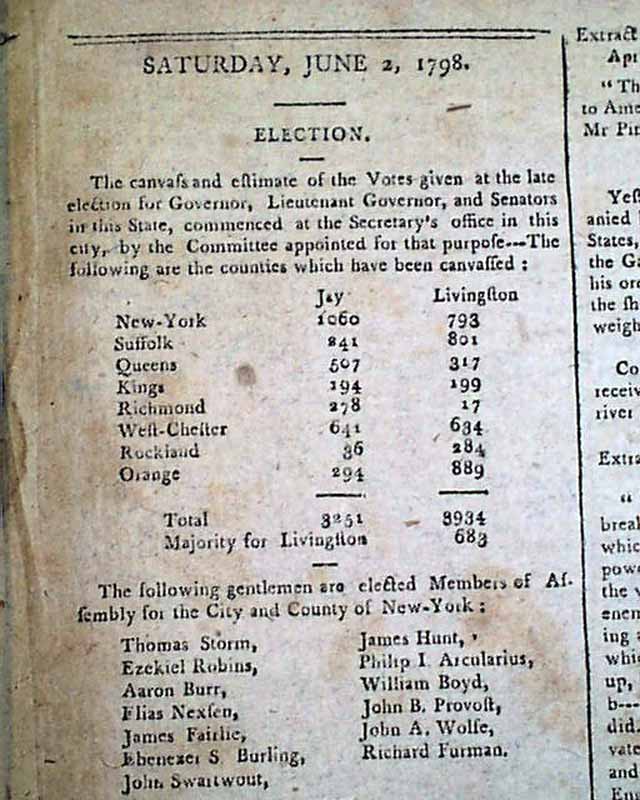 SATURDAY, JUNE 2, 1798.
ELECTION.
The canvaſs and eſtimate of the Votes given at the late
election for Governor, Lieutenant Governor, and Senators
in this State, commenced at the Secretary's office in this
city, by the Committee appointed for that purpoſe---The
following are the counties which have been canvaſſed :
Jay Livingſton
New-York 1060 793
Suffolk 241 801
Queens 507 317
Kings 194 199
Richmond 278 17
Weſt-Cheſter 641 634
Rockland 36 284
Orange 294 889
Total 3251 3934
Majority for Livingſton 683
The following gentlemen are elected Members of Aſ-
ſembly for the City and County of New-York :
Thomas Storm,
Ezekiel Robins,
Aaron Burr,
Elias Nexſen,
James Fairlie,
Ebenezer S. Burling,
John Swartwout,
James Hunt,
Philip I Arcularius,
William Boyd,
John B. Provoſt,
John A. Wolfe,
Richard Furman.
Extract
Apr
"Th
to Ame
Mr Pin
Yeſt
anied
States,
the Ga
his ord
the ſh
weigh
Co
receiv
river
Extra
"
break
whic
powe
the v
enem
ing a
whic
up,
b---
did.
vate
and
Eng